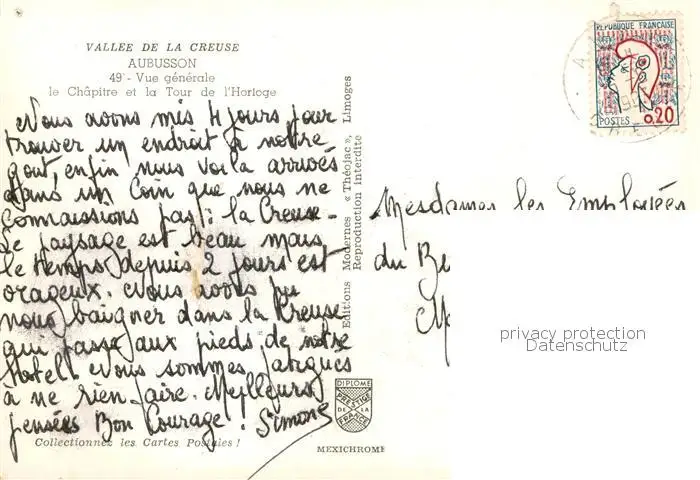 VALLEE DE LA CREUSE
AUBUSSON
49 - Vue générale
le Châpitre et la Tour de l'Horloge
Nous avons mis 4 jours pour
trouver un endroit à notre
gout, enfin nous voila arrivés
dans un coin que nous ne
connaissions pas : la Creuse -
Le paysage est beau mais
le temps depuis 2 jours est
orageux. Nous avons pu
nous baigner dans la Creuse
qui passe aux pieds de notre
hotel. Nous sommes fatigués
à ne rien faire. Meilleurs
pensées Bon Courage. Simone
Collectionnez les Cartes Postales !
Editions Modernes « Théojac », Limoges
Reproduction interdite
DIPLOME
PRESTIGE
DE LA
FRANCE
MEXICHROME
REPUBLIQUE FRANÇAISE
POSTES 0,20
Mesdames les Employées
du
privacy protection
Datenschutz